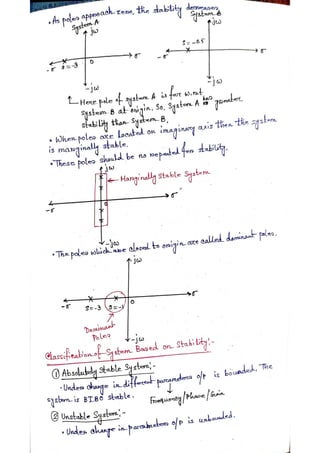 • As poles approach zero, the stability decreases
System A
System B
jω
jω
S = -3
0
σ
-σ
S = -25
σ
-σ
-jω
-jω
Here pole of system A is far w.r.t
system B at origin. So, System A has greater
stability than System B.
• When poles are located on imaginary axis then the system
is marginally stable.
• These poles should be no repeated for stability.
jω
Marginally Stable System
σ
-σ
0
-jω
• The poles which are closed to origin are called dominant poles.
jω
σ
-σ
S=-3
S=-1
0
Dominant
Poles
-jω
Classification of System Based on Stability:-
① Absolutely Stable System:-
- Under change in different parameters o/p is bounded. The
system is BIBO stable.
Frequency/Phase/Gain
② Unstable System:-
• Under change in parameters o/p is unbounded.